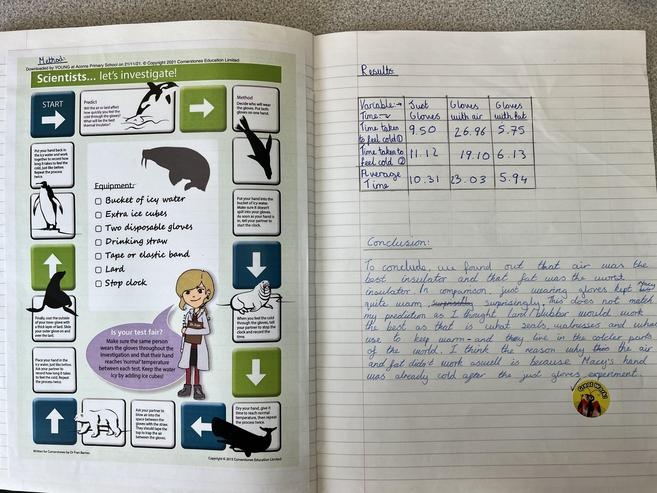 Method:
Downloaded by YOUNG at Acorns Primary School on 21/11/21. © Copyright 2021 Cornerstones Education Limited
Scientists... let's investigate!
START
Predict
Will the air or lard affect
how quickly you feel the
cold through the gloves?
What will be the best
thermal insulator?
Method
Decide who will wear
the gloves. Put both
gloves on one hand.
Put your hand back in
the icy water and work
together to record how
long it takes to feel the
cold, just like before.
Repeat the process
twice.
Equipment:
Bucket of icy water
Extra ice cubes
Two disposable gloves
Drinking straw
Tape or elastic band
Lard
Stop clock
Put your hand into the
bucket of icy water.
Make sure it doesn't
spill into your gloves.
As soon as your hand is
in, tell your partner to
start the clock.
Finally, coat the outside
of your inner glove with
a thick layer of lard. Slide
your outer glove on and
over the lard.
When you feel the cold
through the gloves, tell
your partner to stop the
clock and record the
time.
Is your test fair?
Make sure the same person
wears the gloves throughout the
investigation and that their hand
reaches 'normal' temperature
between each test. Keep the water
icy by adding ice cubes!
Place your hand in the
icy water, just like before.
Ask your partner to
record how long it takes
to feel the cold. Repeat
the process twice.
Ask your partner to
blow air into the space
between the gloves
with the straw. They
should tape the top to
trap the air between
the gloves.
Dry your hand, give it
time to reach normal
temperature, then repeat
the process twice.
Written for Cornerstones by Dr Fran Barnes
Copyright © 2013 Cornerstones Education Limited
Results
Variable→ Just Gloves Gloves
Time↓ Gloves with air with fat
Time taken to feel cold① 9.50 26.96 5.75
Time taken to feel cold ② 11.12 19.10 6.13
Average Time 10.31 23.03 5.94
Conclusion:
To conclude, we found out that air was the
best insulator and that fat was the worst
insulator. In comparison, just wearing gloves kept Macy
quite warm, surprisingly. This does not match
my prediction as I thought lard/blubber would work
the best as that is what seals, walruses and whales
use to keep warm - and they live in the colder parts
of the world. I think the reason why the air
and fat didn't work aswell is because Macy's hand
was already cold after the just gloves experiment.
Great Work!